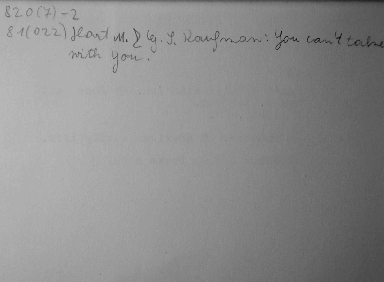 820(7)-2
81(022) Hart M. & G. S. Kaufman: You can't take
with you.